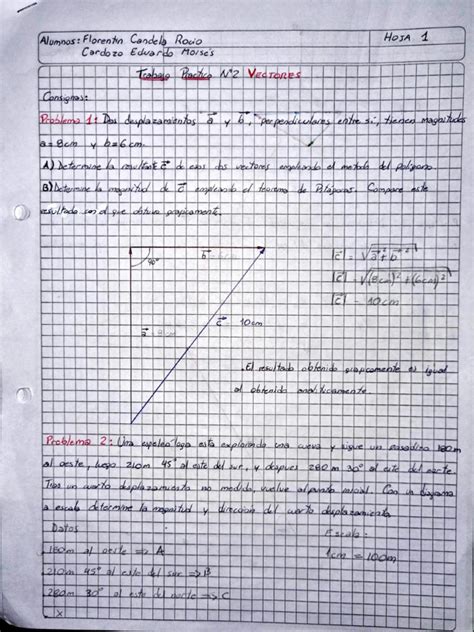 Alumnos: Florentin Candela Rocio
Cardozo Eduardo Moisés
HOJA 1
Trabajo Practico N°2 VECTORES
Consignas:
Problema 1: Dos desplazamientos a y b, perpendiculares entre si, tienen magnitudes
a = 8cm y b = 6cm.
A) Determine la resultante c de esos dos vectores empleando el metodo del poligono
B) Determine la magnitud de c empleando el teorema de Pitágoras. Compare este
resultado con el que obtuvo graficamente.
90°
b
a
c 10cm
|c| = √a² + b²
|c| = √(8cm)² + (6cm)²
|c| = 10cm
.El resultado obtenido graficamente es igual
al obtenido analiticamente.
Problema 2: Una espeleologa esta explorando una cueva y sigue un pasadizo 180m
al oeste, luego 210m 45° al este del sur, y despues 280m 30° al este del norte.
Tras un cuarto desplazamiento no medido, vuelve al punto inicial. Con un diagrama
a escala determine la magnitud y direccion del cuarto desplazamiento
Datos
Escala:
.180m al oeste => A
1cm = 100m
.210m 45° al este del sur => B
.280m 30° al este del norte => C
. X